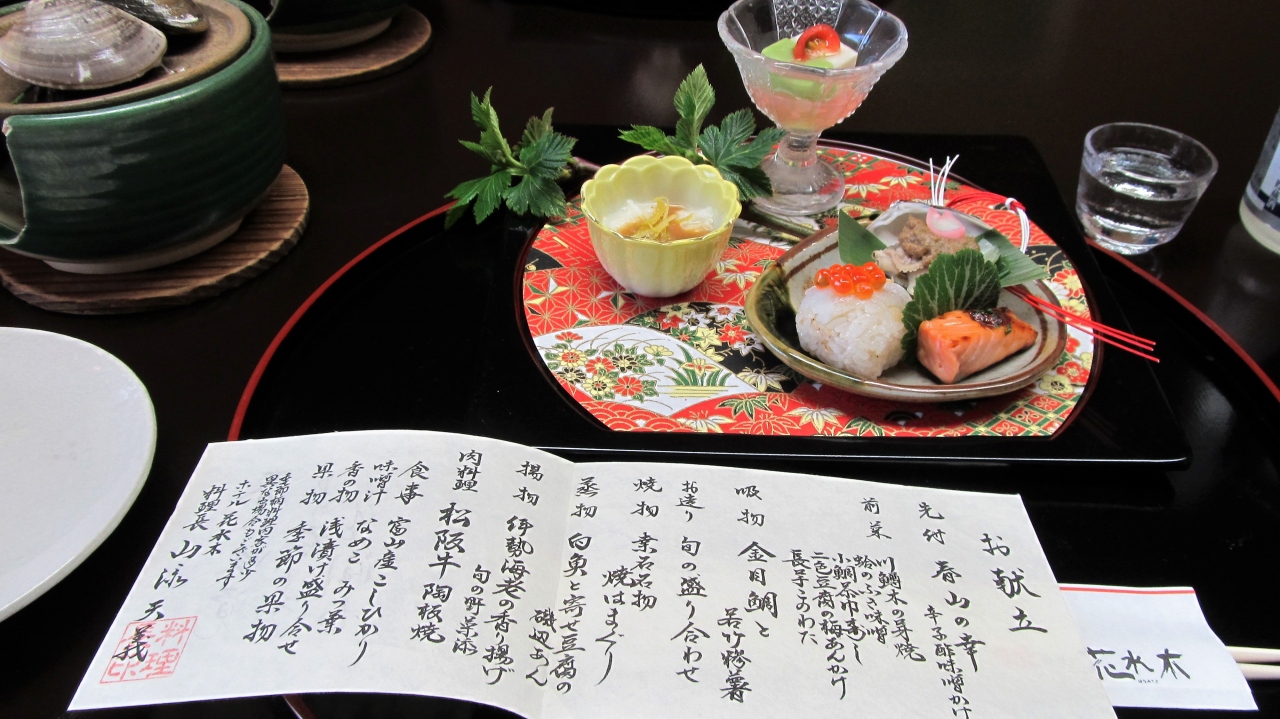 お献立
先付 春山の幸
辛子酢味噌かけ
前菜
川鱒木の芽焼
蛤のふき味噌
小鯛茶巾寿し
二色豆腐の梅あんかけ
長芋このわた
吸物 金目鯛と
若竹
お造り 旬の盛り合わせ
焼物 桑名名物
焼はまぐり
蒸物 白魚と寄せ豆腐の
磯辺あん
揚物 伊勢海老の香り揚げ
旬の野菜添
肉料理 松阪牛陶板焼
食事 富山産こしひかり
味噌汁 なめこ みつ葉
香の物 浅漬け盛り合せ
果物 季節の果物
ホテル 花水木
料理長
花水木